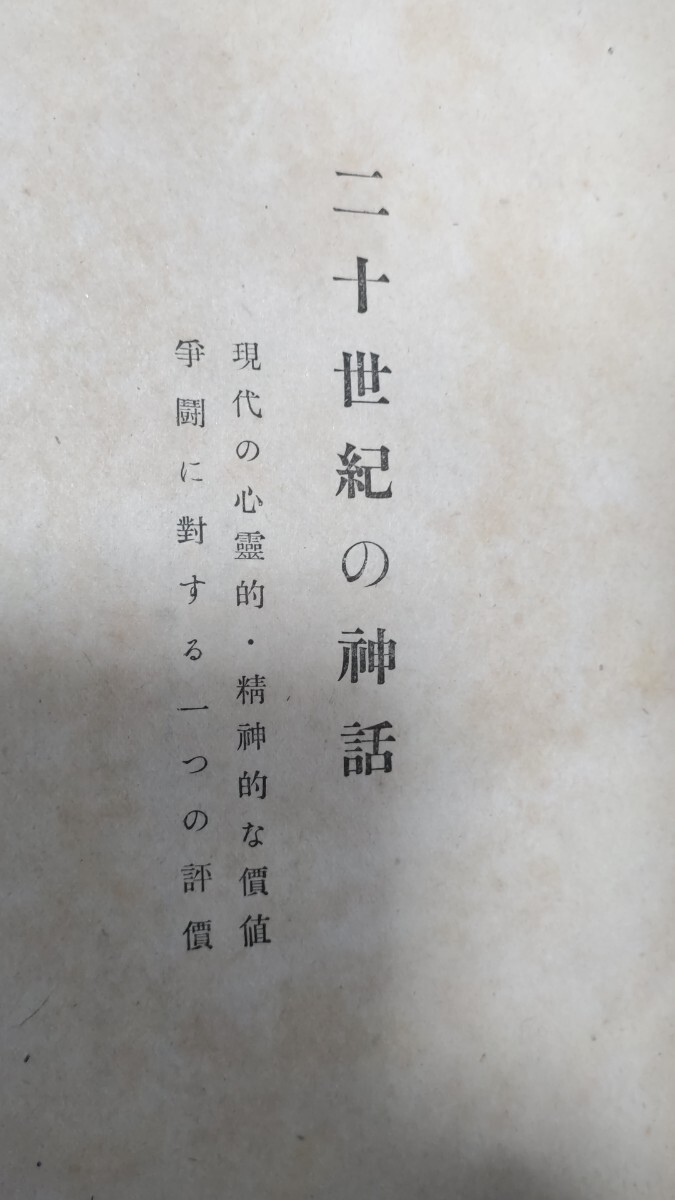 二十世紀の神話
現代の心靈的・精神的な價値
爭鬪に對する一つの評價